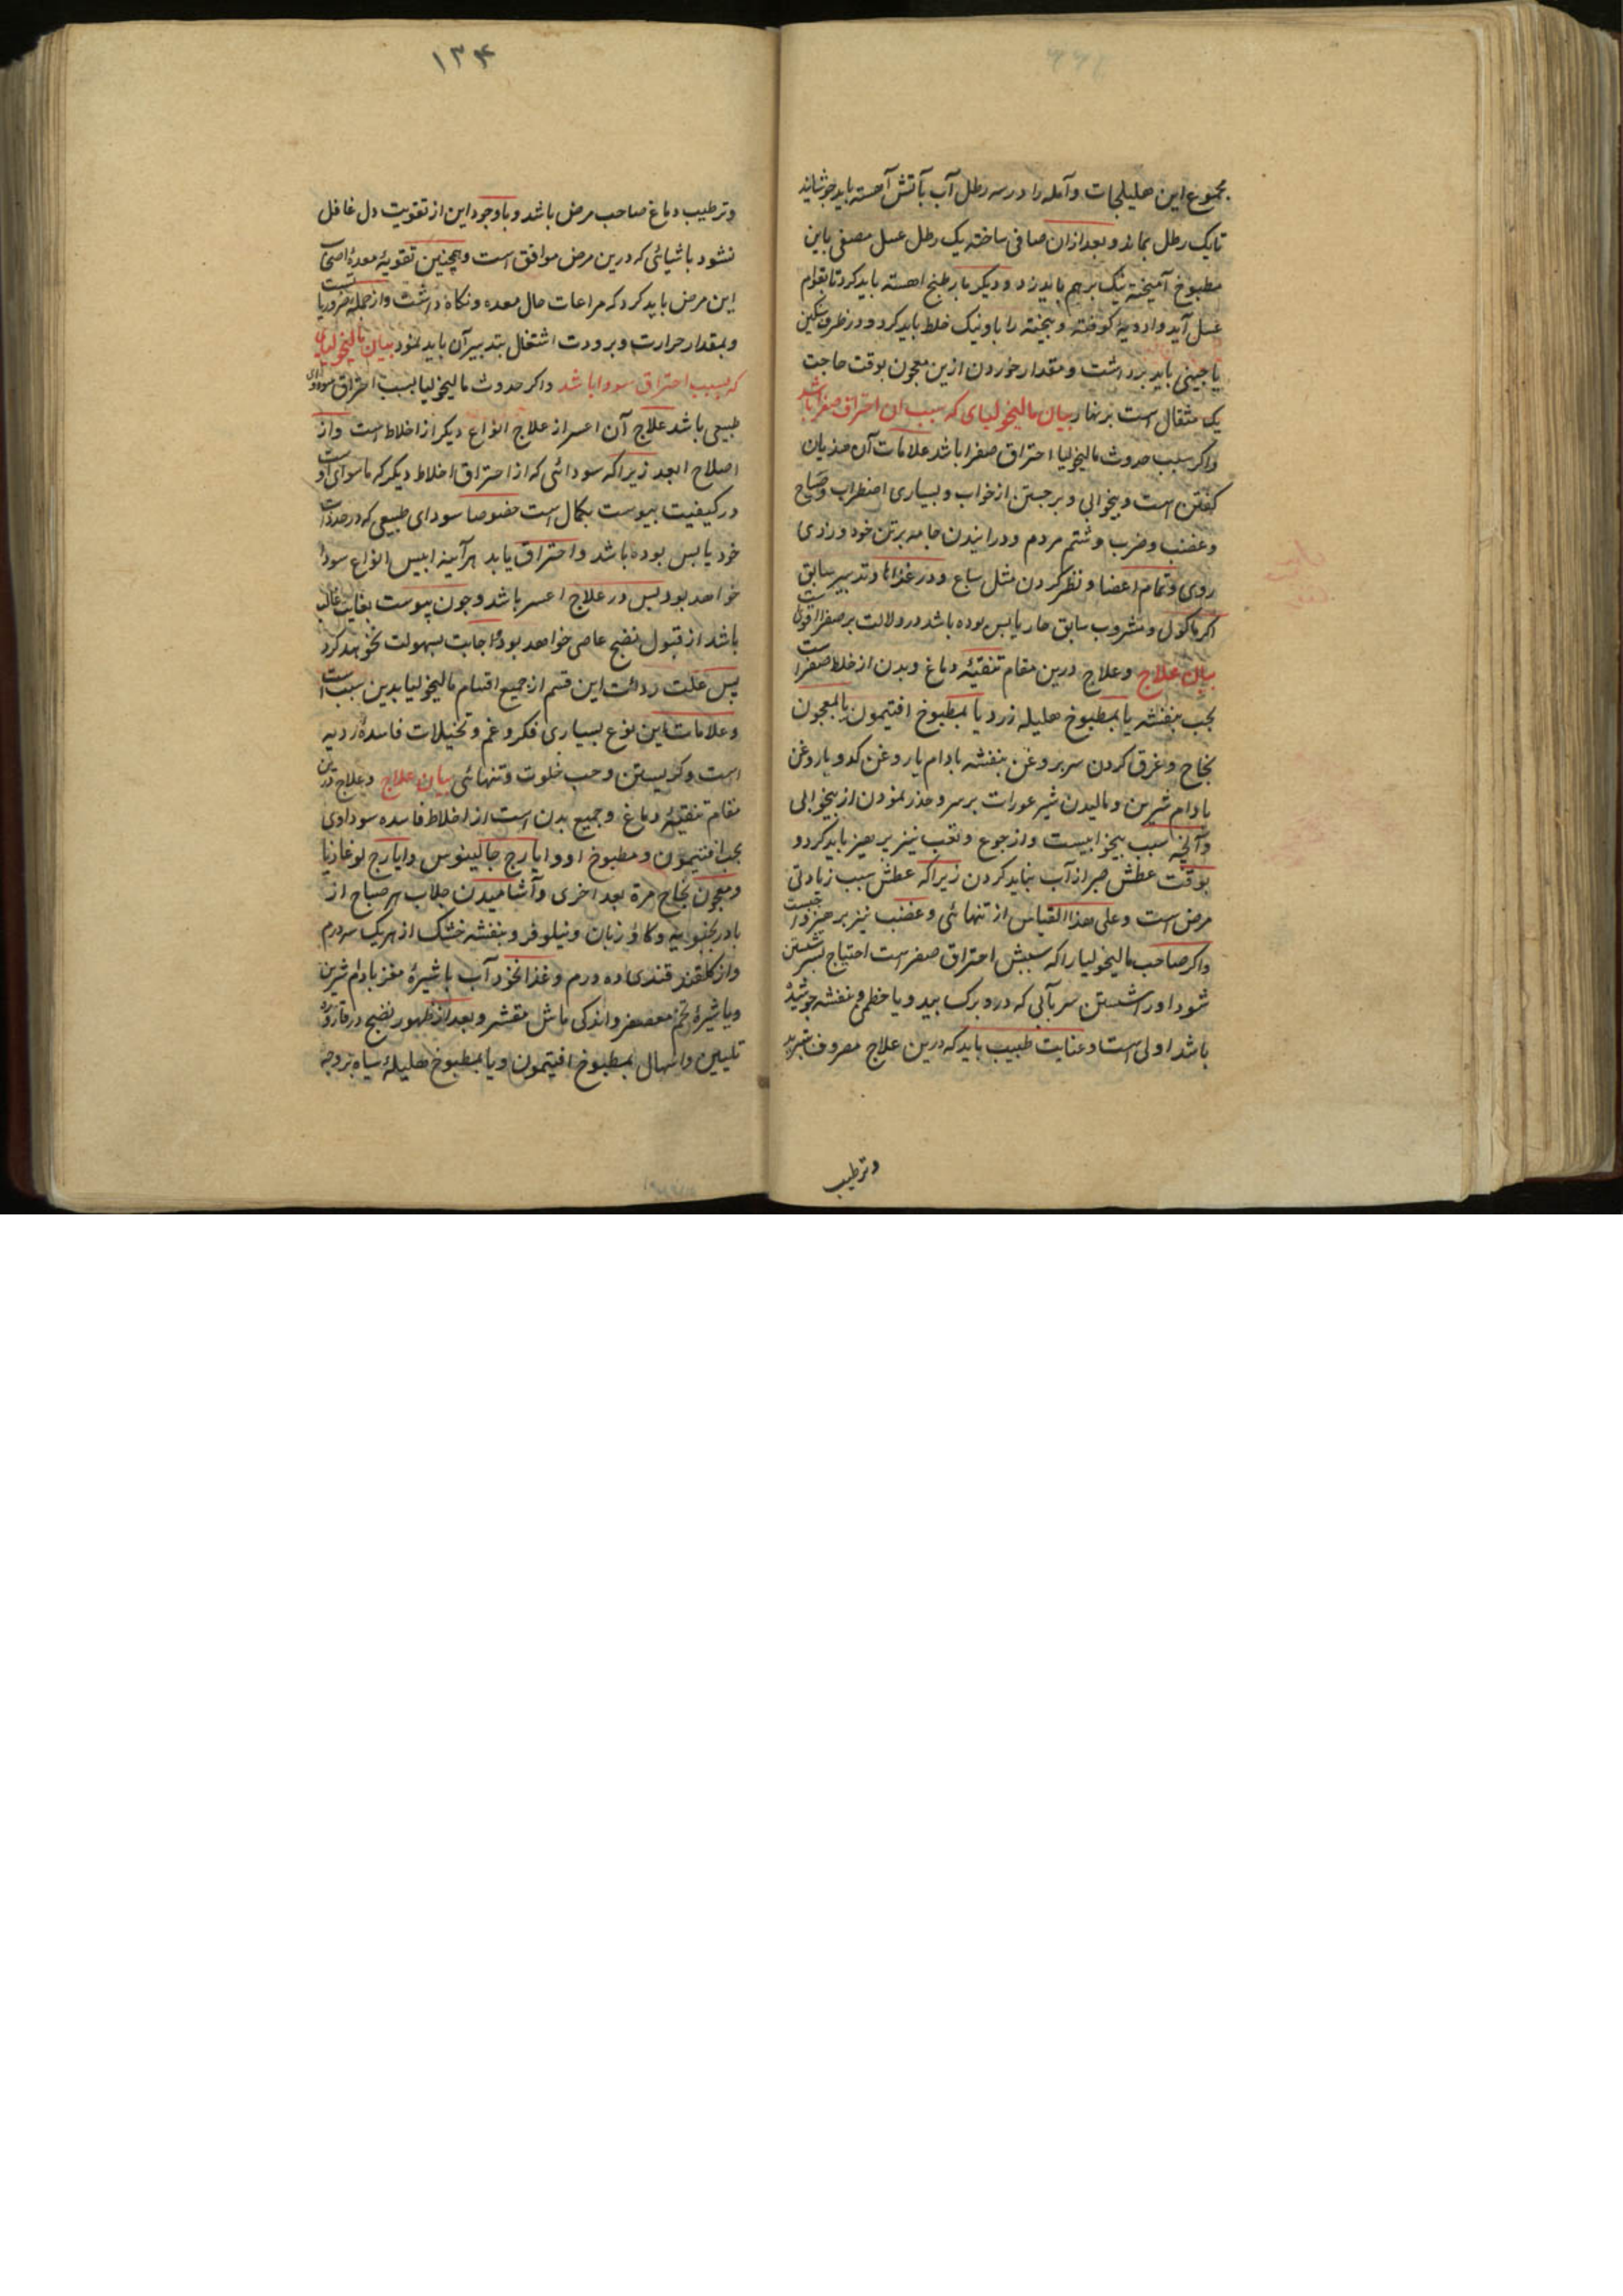 مجموع این هلیلجات و آمله را در سه رطل آب بآتش آهسته باید جوشانید
تا یک رطل بماند و بعد ازان صافی ساخته یک رطل عسل مصفی باین
مطبوخ آمیخته نیک برهم باید زد و دیکر بار طبخ اهسته باید کرد تا بقوام
عسل آید و ادویهٔ کوفته و بیخته را با و نیک خلط باید کرد و در ظرف سکین
یا چینی باید برداشت و مقدار خوردن ازین معجون بوقت حاجت
یک مثقال است بر نهار بیان مالیخولیای که سبب ان احتراق صفرا باشد
واکر سبب حدوث مالیخولیا احتراق صفرا باشد علامات آن هذیان
کفتن است و بیخوابی و برجستن از خواب و بسیاری اضطراب و صیاح
و غضب و ضرب و شتم مردم و درانیدن جامه برتن خود و زردی
روی و تمام اعضا و نظر کردن مثل سباع و در غذاها و تدبیر سابق
اکر ماکول و مشروب سابق حار یابس بوده باشد در ولالت بر صفرا اقوی است
بیان علاج و علاج درین مقام تنقیهٔ دماغ و بدن از خلط صفرا است
بحب بنفشه یا بمطبوخ هلیله زرد یا بمطبوخ افتیمون یا بمعجون
نجاح و غرق کردن سر بروغن بنفشه بادام یا روغن کدو یا روغن
بادام شیرین و مالیدن شیر عورات بر سر و حذر نمودن از بیخوابی
و آنچه سبب بیخوابیست و از جوع و تعب نیز پرهیز باید کرد و
بوقت عطش صبر از آب نباید کردن زیراکه عطش سبب زیادتی
مرض است و علی هذا القیاس از تنهائی و غضب نیز پرهیز واجبست
واکر صاحب مالیخولیا را که سببش احتراق صفراست احتیاج بسر شستن
شود اورا شستن سر بآبی که درو برک بید و یا خطمی و بنفشه جوشیده
باشد اولی است و عنایت طبیب باید که درین علاج مصروف بتبرید
و ترطیب
۱۳۴
و ترطیب دماغ صاحب مرض باشد و با وجود این از تقویت دل غافل
نشود باشیائی که درین مرض موافق است و همچنین تقویهٔ معدهٔ اصحاب
این مرض باید کرد که مراعات حال معده و نکاه داشت و از جملهٔ ضروریاتست
و بمقدار حرارت و برودت اشتغال بتدبیر آن باید نمود بیان مالیخولیای
که بسبب احتراق سودا باشد و اکر حدوث مالیخولیا بسبب احتراق سودای
طبیعی باشد علاج آن اعسر از علاج انواع دیکر از اخلاط است و از
اصلاح ابعد زیراکه سودائی که از احتراق اخلاط دیکر که ماسوای اوست
در کیفیت یبوست بکمال است خصوصا سودای طبیعی که در حد ذات
خود یابس بوده باشد و احتراق یابد هرآینه ایبس انواع سودا
خواهد بود پس در علاج اعسر باشد و چون یبوست بغایت غالب
باشد از قبول نضج عاصی خواهد بود و اجابت بسهولت نخواهد کرد
پس علت ردائت این قسم از جمیع اقسام مالیخولیا بدین سبب است
و علامات این نوع بسیاری فکر و غم و تخیلات فاسدهٔ ردیه
است و کریستن و حب خلوت و تنهائی بیان علاج و علاج درین
مقام تنقیهٔ دماغ و جمیع بدن است از اخلاط فاسده سوداوی
بحب افتیمون و مطبوخ او و ایارج جالینوس و ایارج لوغاذیا
و معجون نجاح مرة بعد اخری و آشامیدن جلاب هر صباح از
بادرنجبویه و کاوزبان و نیلوفر و بنفشه خشک از هر یک سه درم
و از کلقند قندی ده درم و غذا نخود آب با شیرهٔ مغز بادام شیرین
و یا شیرهٔ تخم معصفر و اندکی ماش مقشر و بعد از ظهور نضج در قاروره
تلیین و اسهال بمطبوخ افتیمون و یا بمطبوخ هلیلهٔ سیاه بزوجه